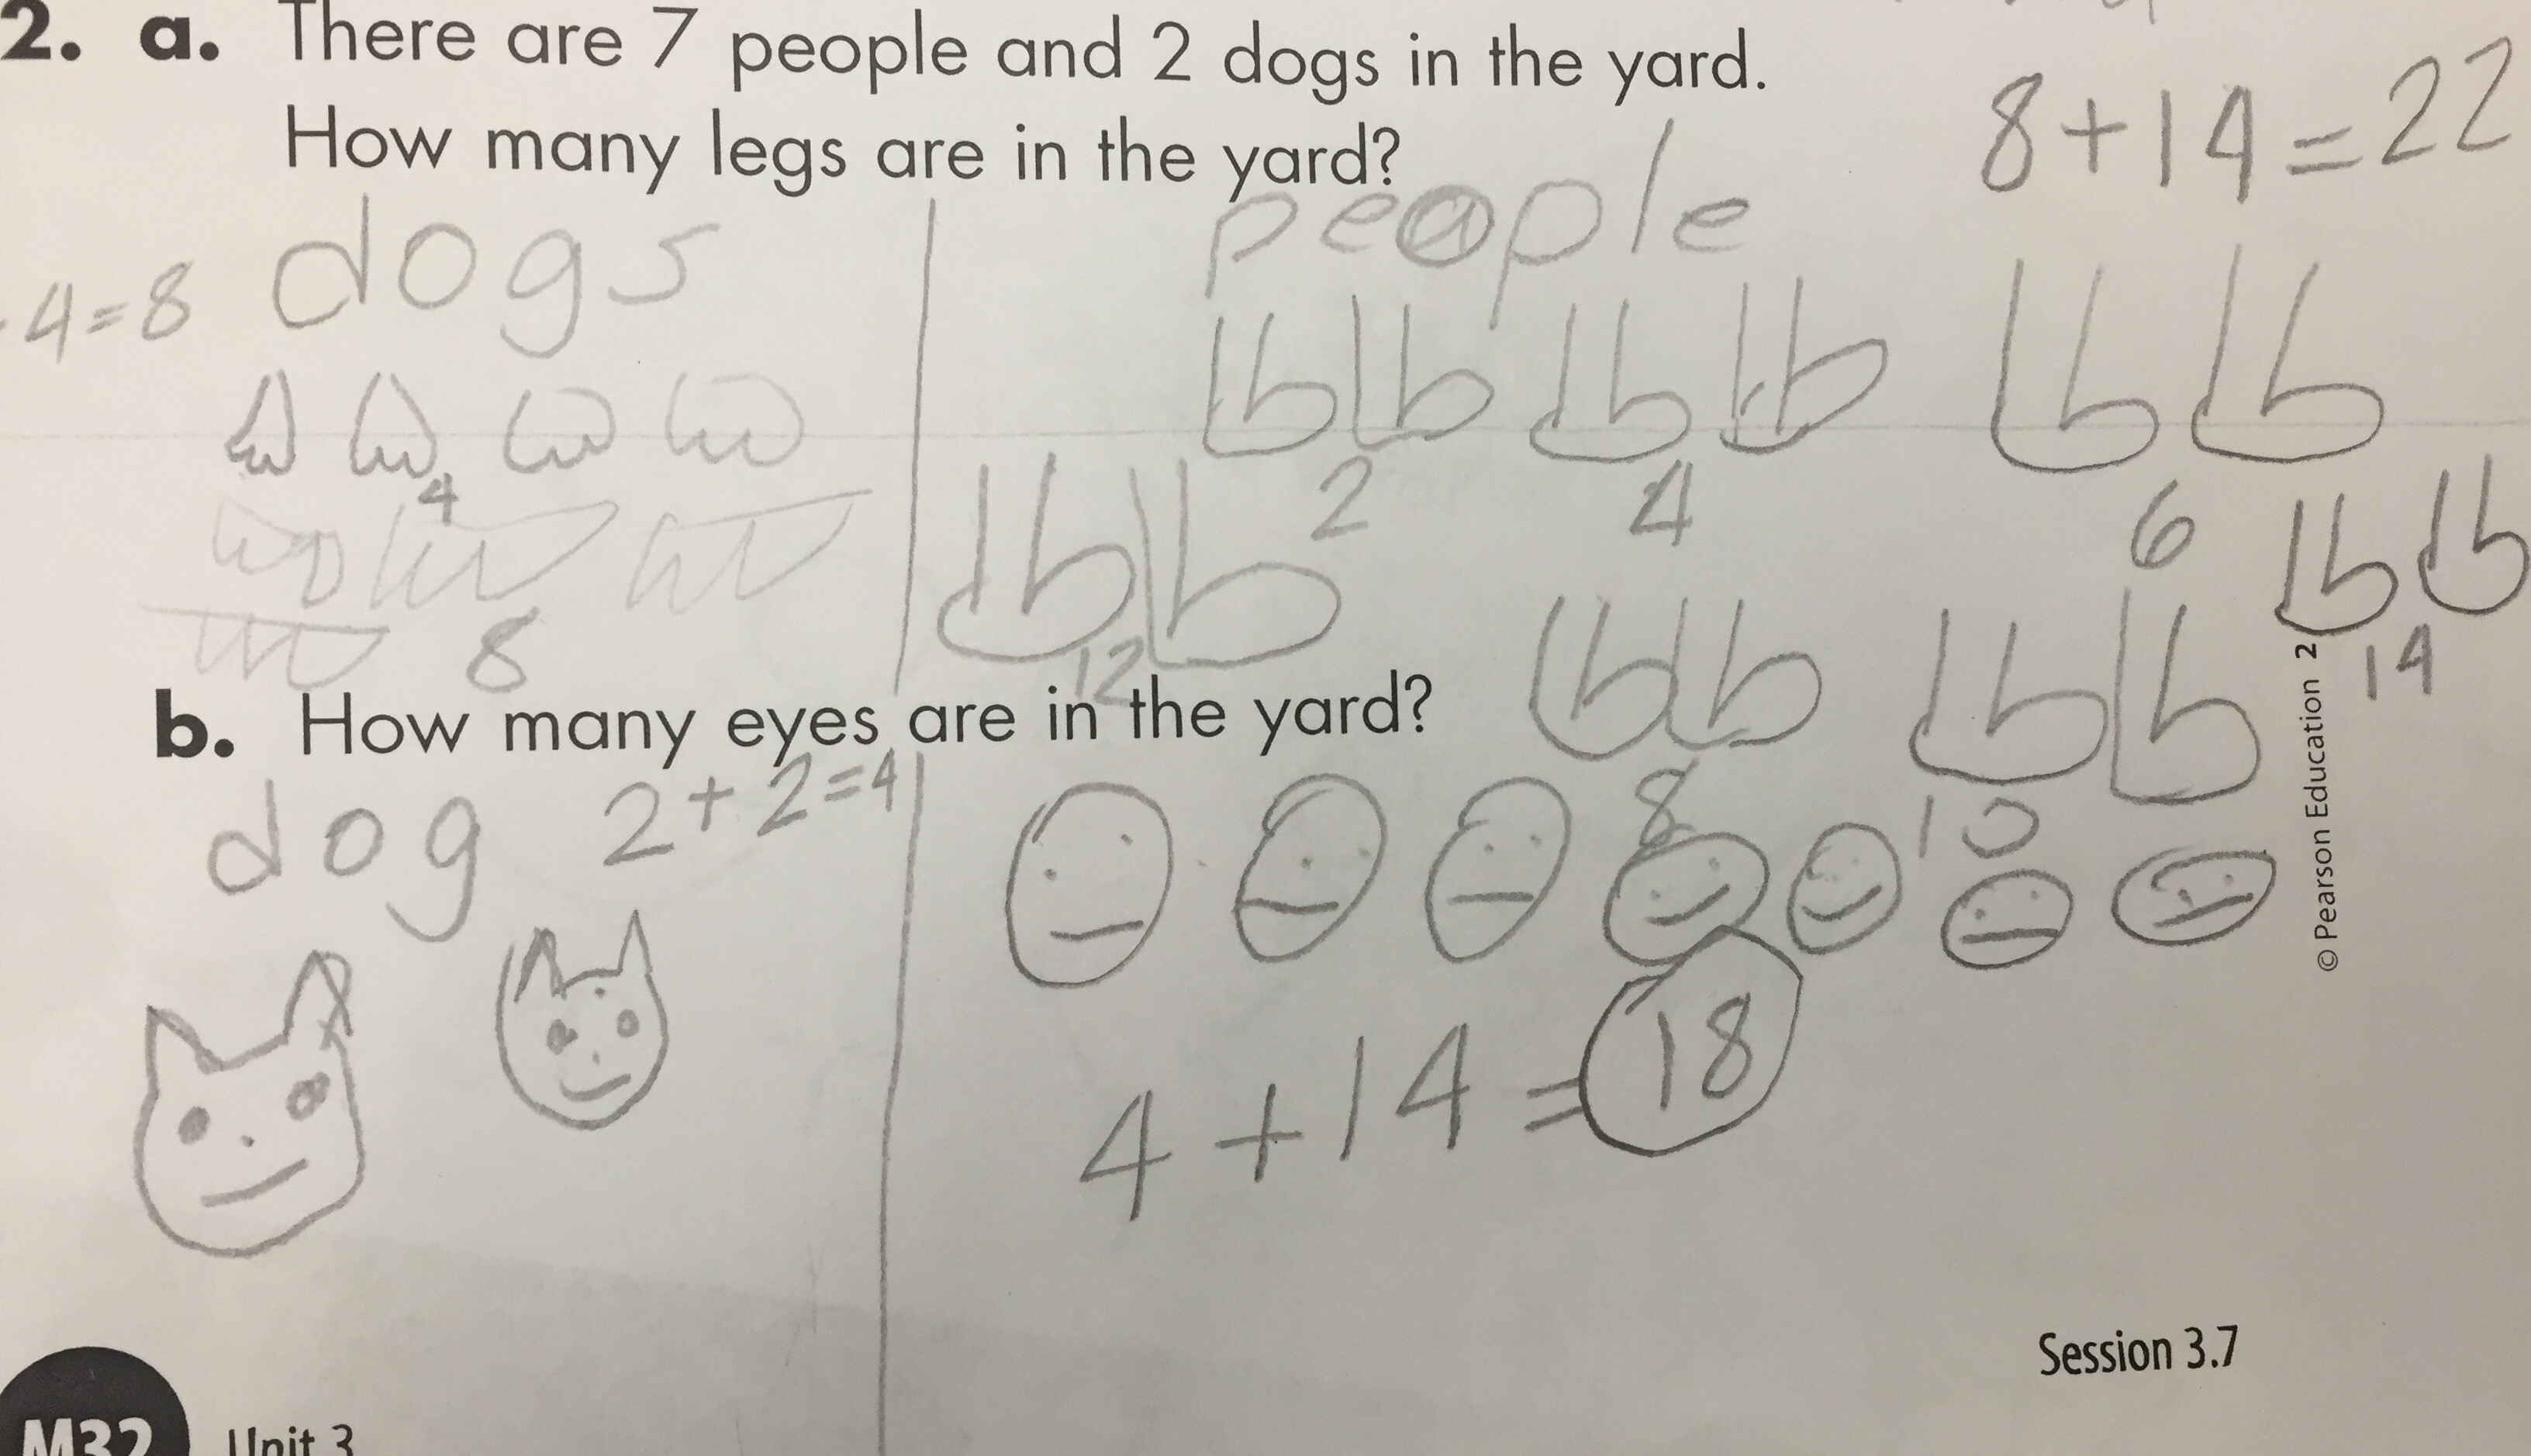 2. a. There are 7 people and 2 dogs in the yard.
How many legs are in the yard?
8+14=22
dogs
people
4=8
4
8
2
4
6
12
14
b. How many eyes are in the yard?
8
10
dog 2+2=4
4+14=18
© Pearson Education 2
Session 3.7
M32 Unit 3